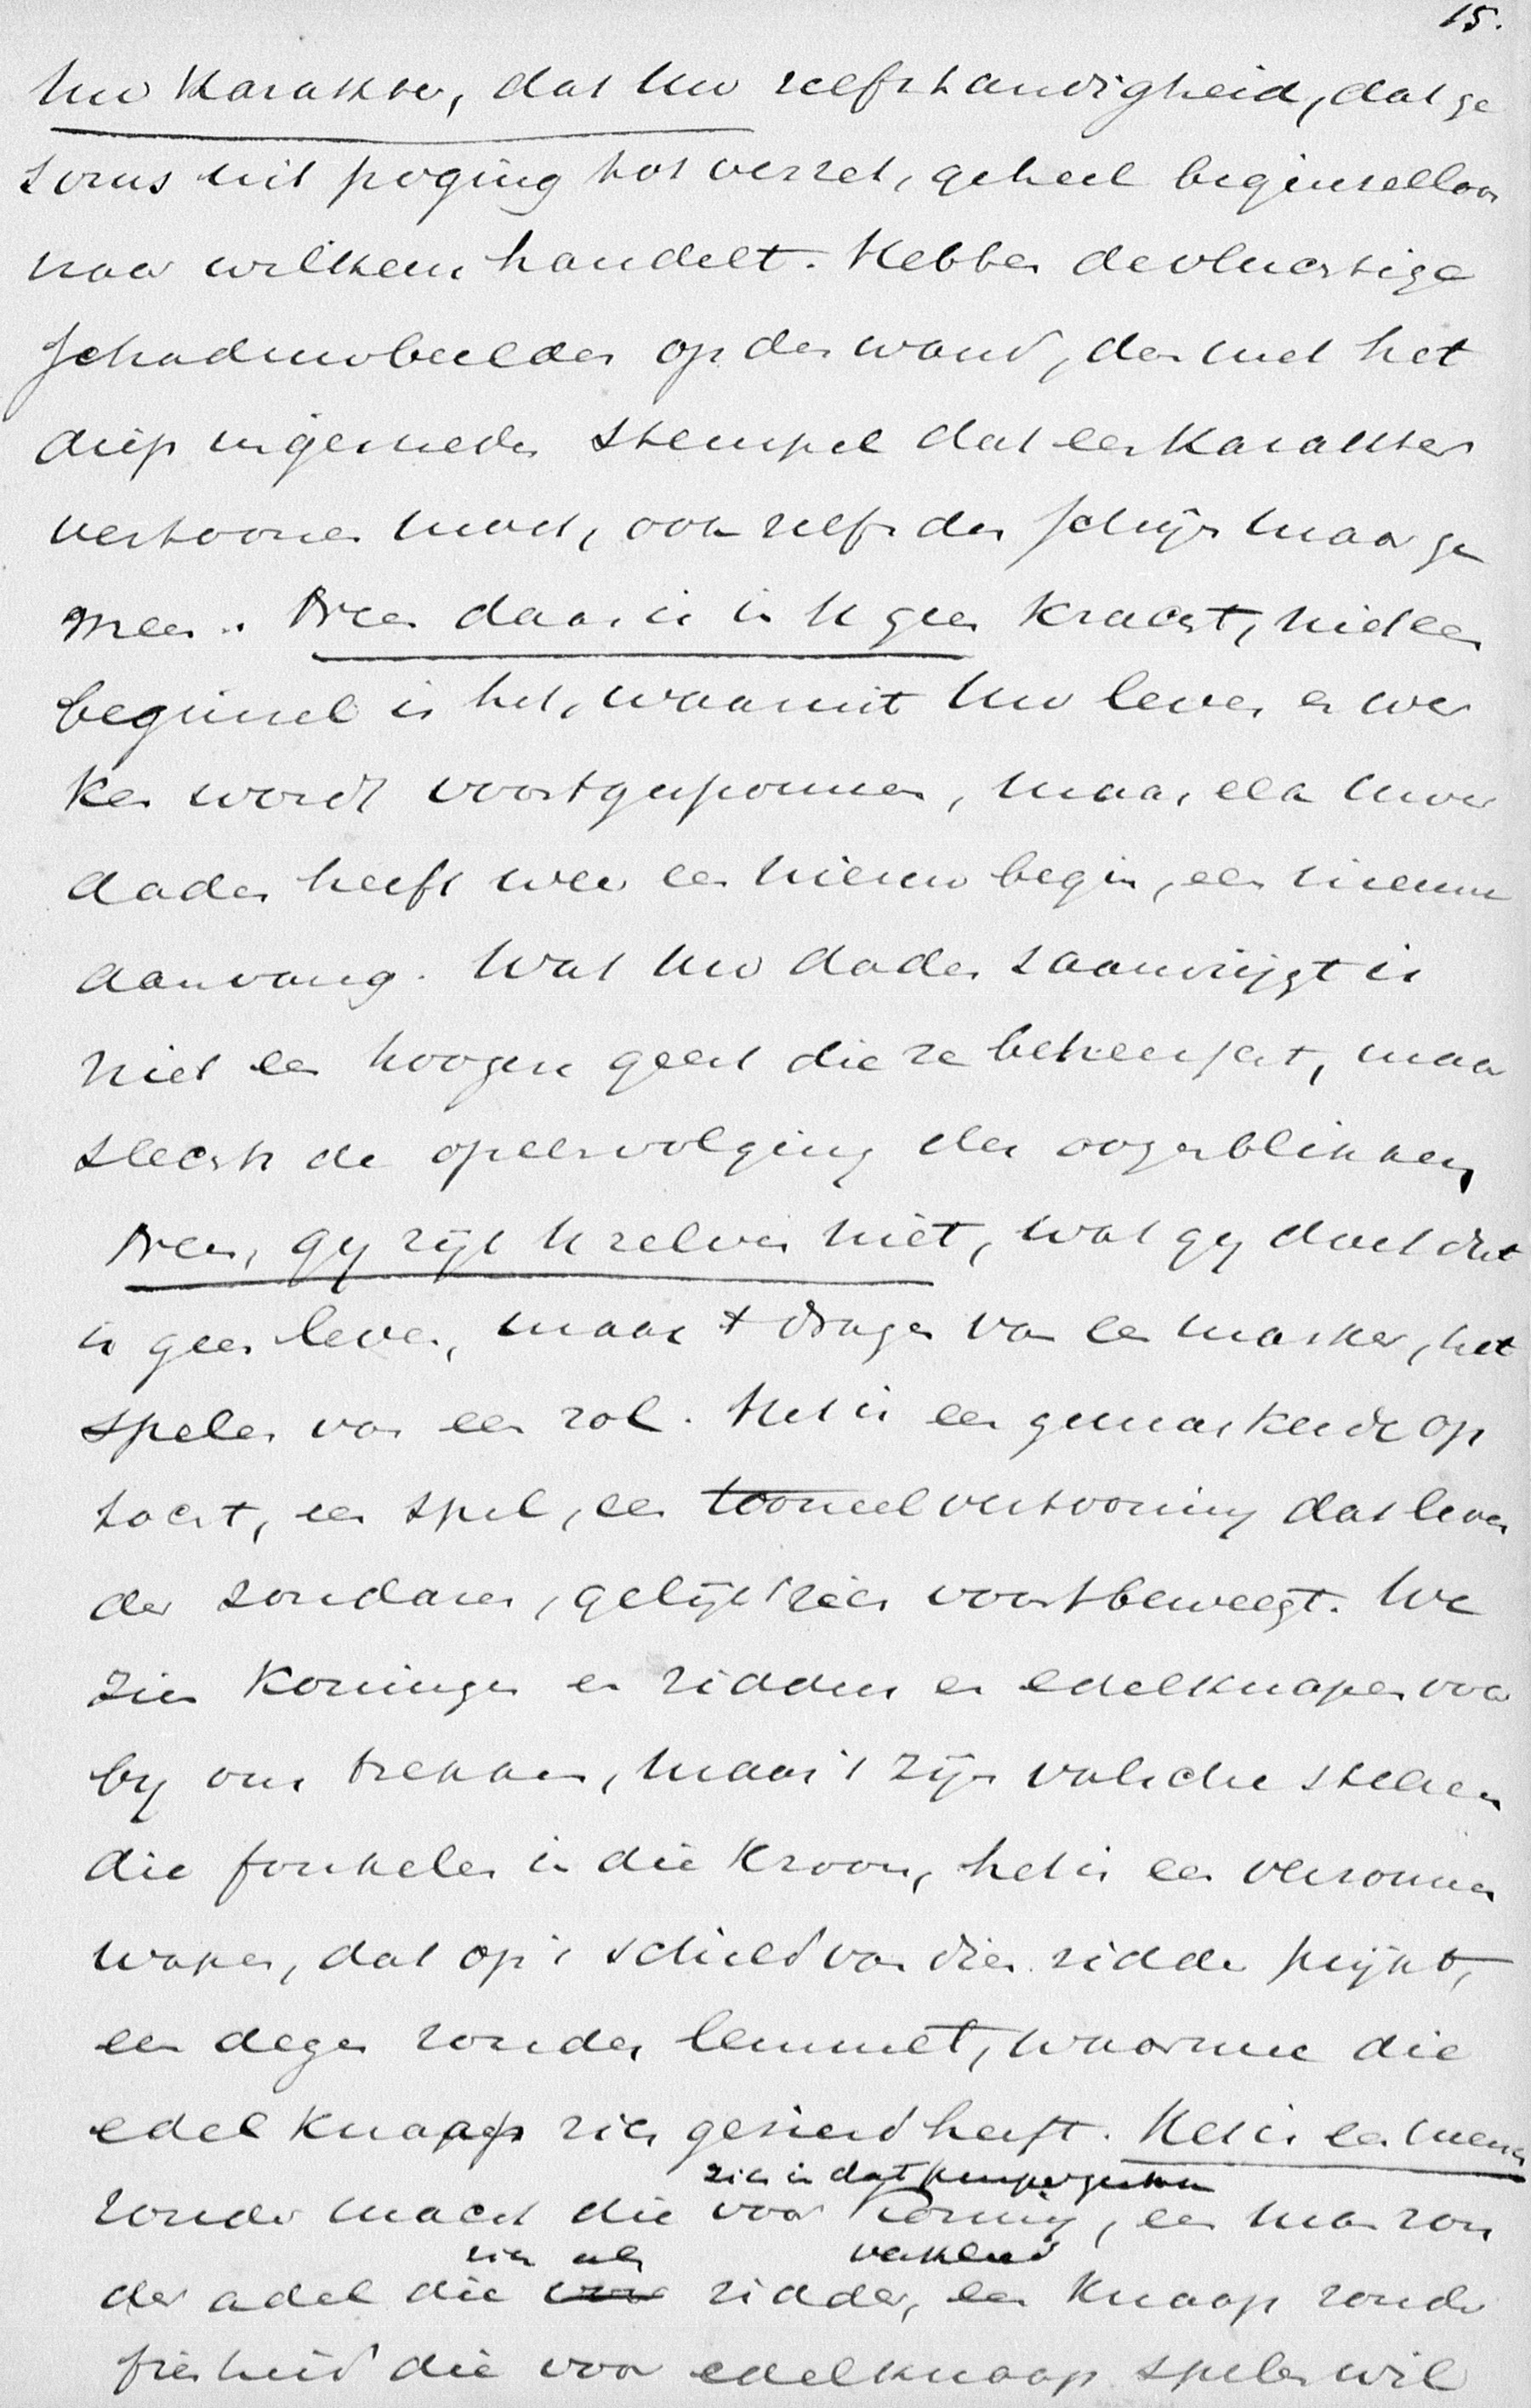 15.
Uw Karakter, dat Uw zelfstandigheid, dat ge
soms uit poging tot verzet, geheel beginselloos
naar willekeur handelt. Hebben de vluchtige
schaduwbeelden op den wand, den met het
diep ingesneden stempel dat een Karakter
vertoonen moet, ook zelfs den schijn maar ge
meen. Neen daar is in U geen Kracht, niet een
beginsel is het, waaruit Uw leven en wer
ken wordt voortgesponnen, maar elk Uwer
daden heeft weer een nieuw begin, een nieuwe
aanvang. Wat Uw daden saamrijgt is
niet een hoogere geest die ze beheerscht, maar
slechts de opeenvolging der oogenblikken
Neen, gy zijt U zelven niet, wat gy doet dat
is geen leven, maar 't dragen van een masker, het
spelen van een rol. Het is een gemaskerde op
tocht, een spel, een tooneelvertooning dat leven
der zondaren, gelijk 't zich voortbeweegt. We
zien Koningen en ridders en edelknapen voor
by ons trekken, maar 't zijn valsche steenen
die fonkelen in die Kroon, het is een verzonnen
wapen, dat op 't schild van dien ridder prijkt,
een degen zonder lemmet, waarmee die
edelknaap zich gesierd heeft. Het is een mensch
zich in dat purper
zonder macht die voor Koning, een man zon
zich als verkleed
der adel die voor ridder, een Knaap zonder
fierheid die voor edelknaap spelen wil